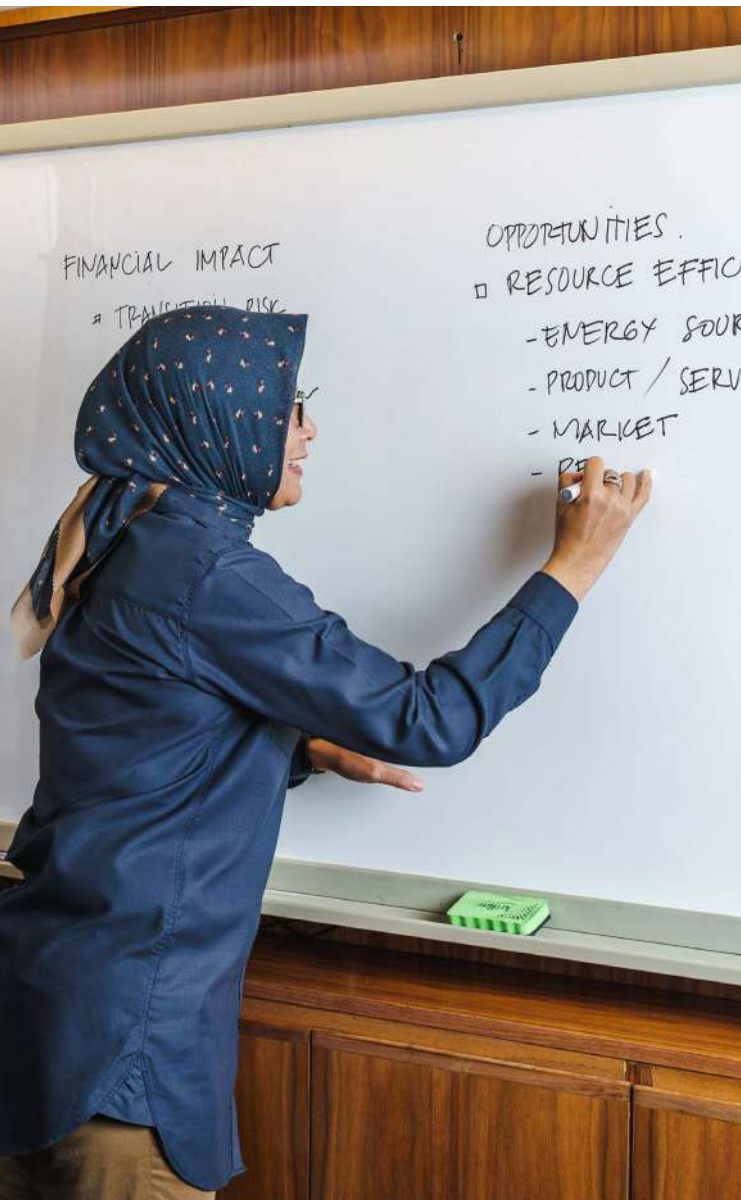 FINANCIAL IMPACT
TRANSITION RISK
OPPORTUNITIES.
RESOURCE EFFIC
- ENERGY SOUR
- PRODUCT / SERV
- MARKET
- RE